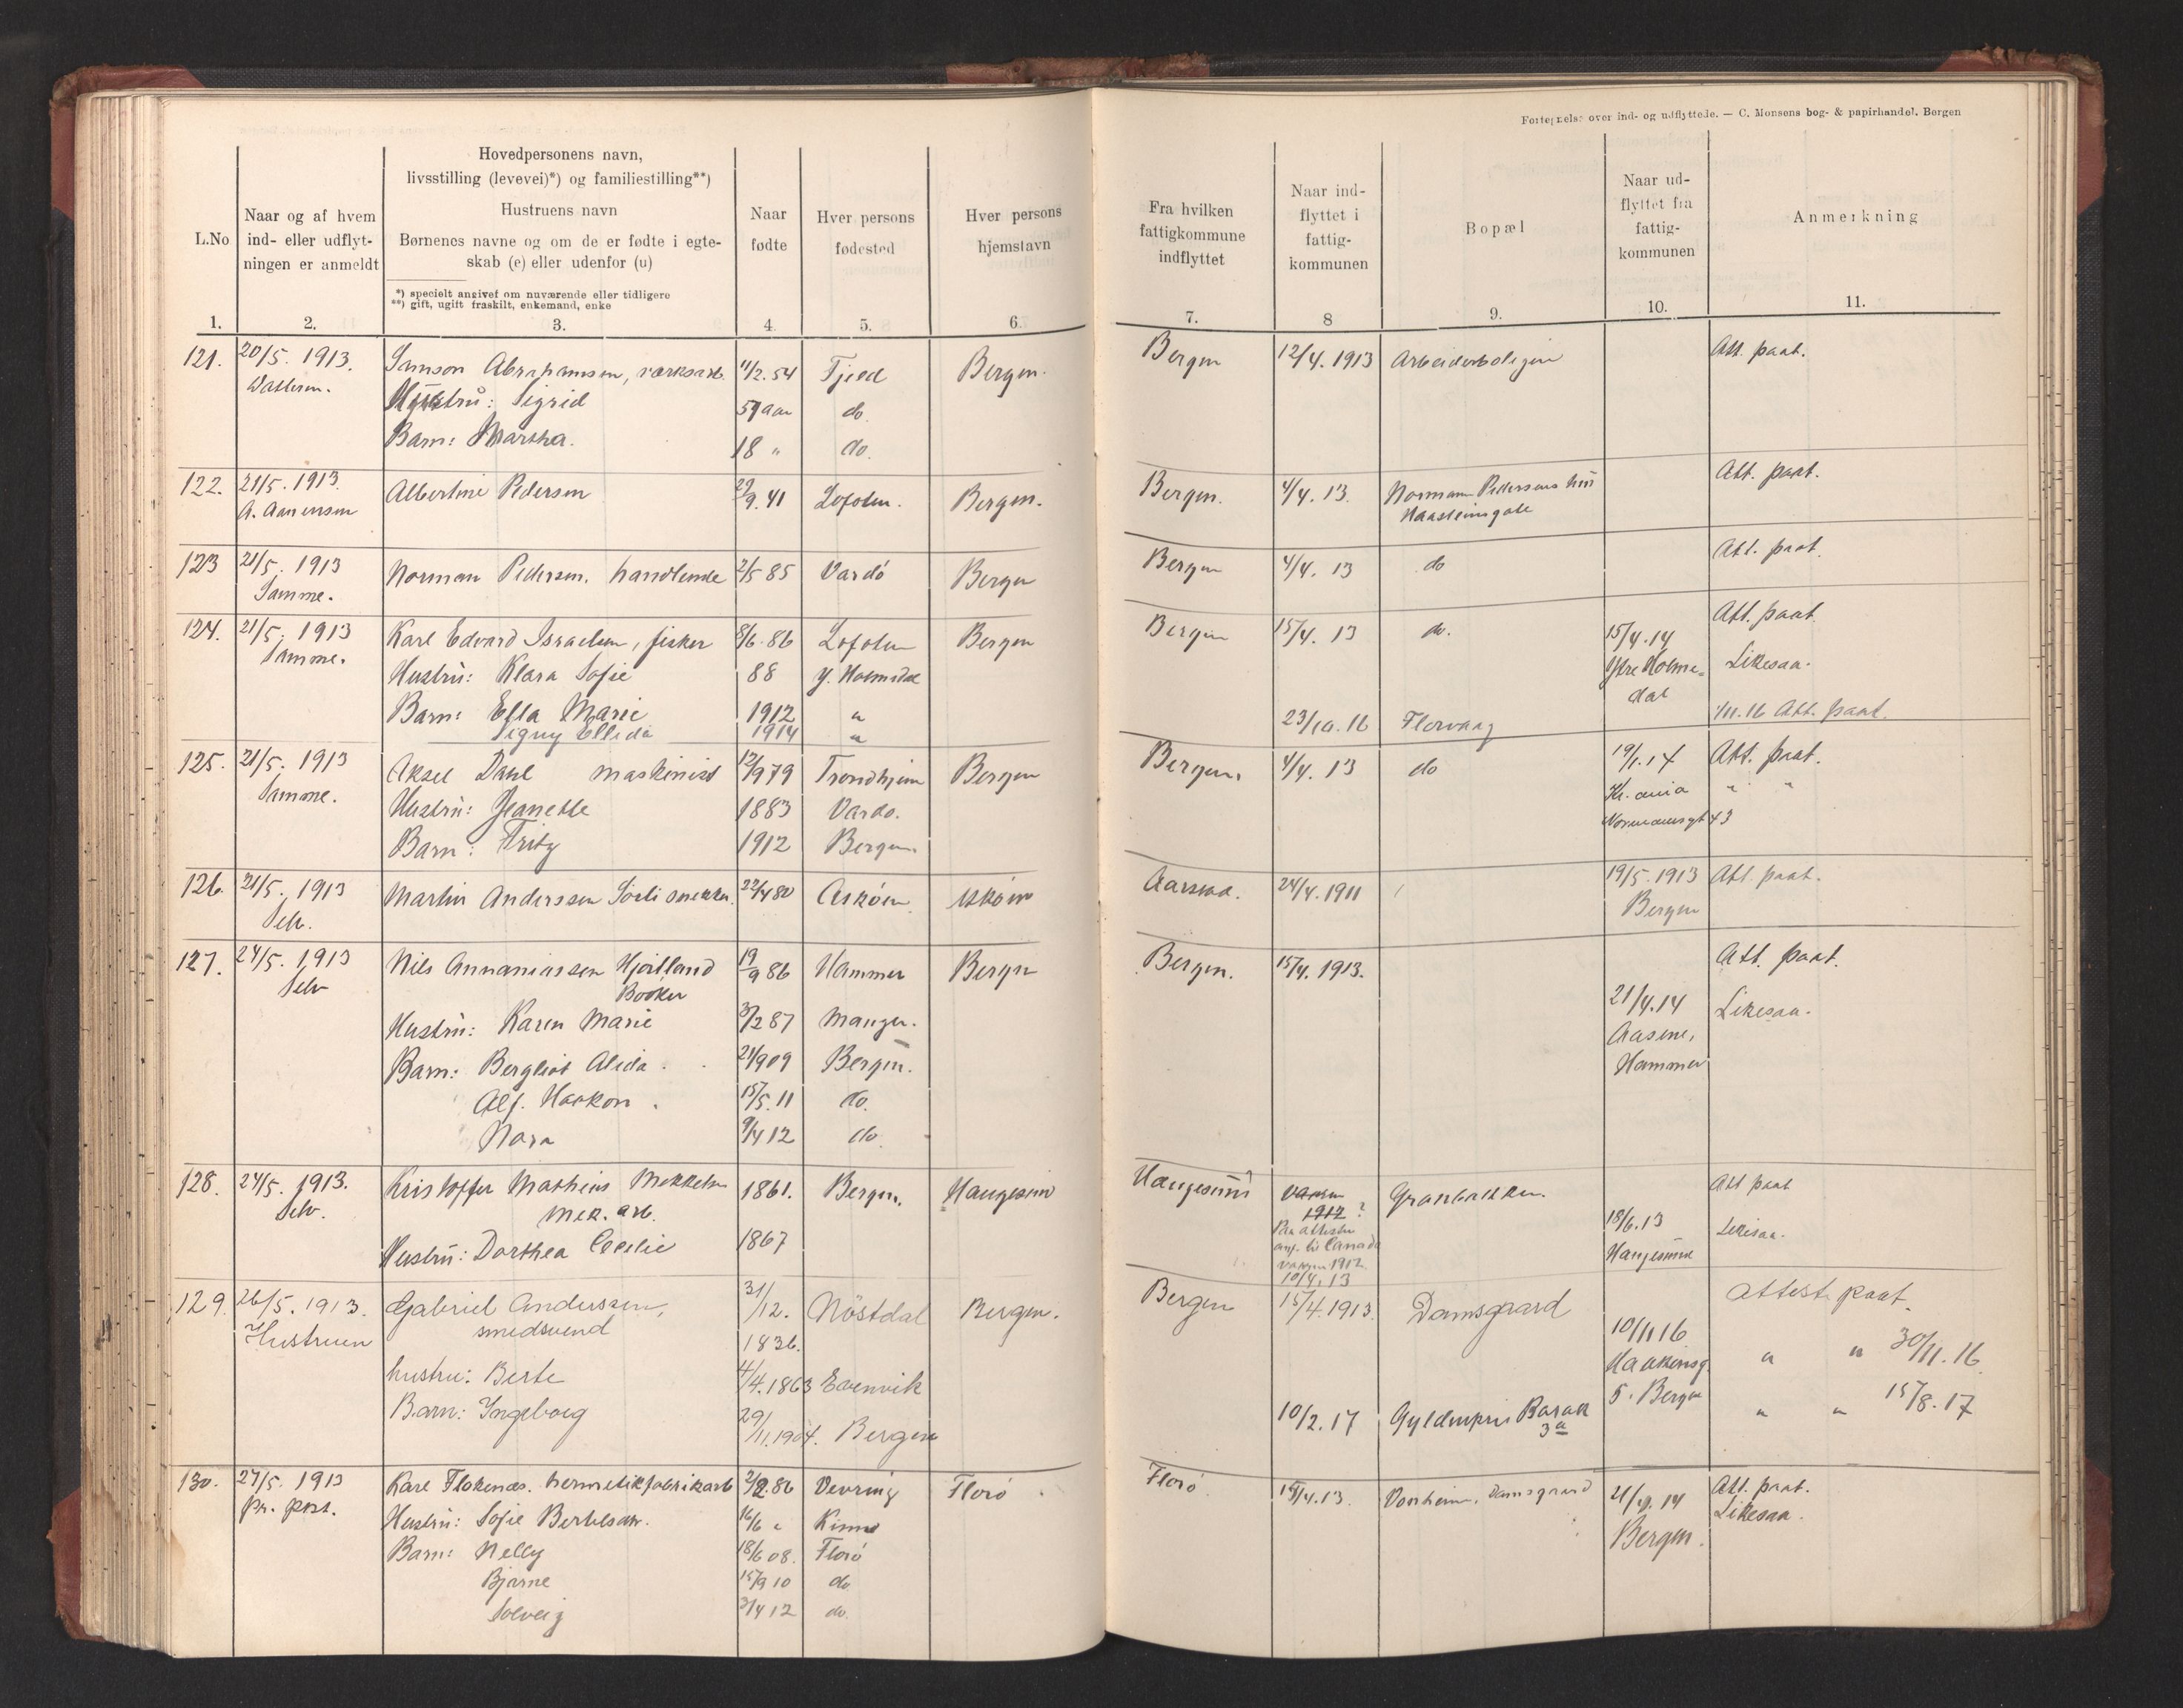 Fortegnelse over ind- og udflyttede. — C. Monsens bog- & papirhandel. Bergen
L.No
Naar og af hvem ind- eller udflyt-ningen er anmeldt
Hovedpersonens navn,
livsstilling (levevei)*) og familiestilling**)
Hustruens navn
Børnenes navne og om de er fødte i egte-
skab (e) eller udenfor (u)
*) specielt angivet om nuværende eller tidligere
**) gift, ugift fraskilt, enkemand, enke
Naar fødte
Hver persons fødested
Hver persons hjemstavn
Fra hvilken fattigkommune indflyttet
Naar ind-flyttet i fattig-kommunen
Bopæl
Naar ud-flyttet fra fattig-kommunen
Anmerkning
1. 2. 3. 4. 5. 6. 7. 8 9. 10. 11.
121. 20/5. 1913. Samson Abrahamsen, værksarb. 11/2. 54 Fjeld Bergen. Bergen 12/4. 1913 Arbeiderboligen Att. paat.
Hustru: Sigrid 59 aar do.
Barn: Martha. 18 " do.
122. 21/5. 1913. Albertine Pedersen 29/9. 41 Lofoten. Bergen. Bergen. 4/4. 13. Normann Pedersens hus Att. paat.
A. Aanensen Haasteinsgate
123 21/5. 1913 Norman Pedersen, handlende 2/5 85 Vardö Bergen Bergen 4/4. 13 do Att. paat.
Samme.
124. 21/5. 1913 Karl Edvard Israelsen, fisker 8/6. 86 Lofoten Bergen Bergen 15/4. 13 do. 15/4. 14 Att. paat.
Samme. Hustru: Klara Sofie 88 Y. Holmedal Ytre Holme=dal Likesaa.
Barn: Ella Marie 1912 "
Signy Ellida 1914 " 23/10. 16 Florvaag 1/11. 16 Att. paat.
125. 21/5. 1913 Aksel Dahl maskinist 12/9 79 Trondhjem Bergen Bergen. 4/4. 13 do 19/1. 14 Att. paat.
Samme. Hustru: Jeanette 1883 Vardo. Kr. ania " "
Barn: Fritz 1912 Bergen. Normannsgt 43
126. 21/5. 1913 Martin Anderssen Sörli snekker. 22/4 80 Askøen. Askøen Aarstad. 24/4. 1911 19/5. 1913 Att. paat.
Selv. Bergen
127. 24/5. 1913 Nils Annaniassen Hjortland 19/9 86 Hammer Bergen Bergen. 15/4. 1913. Att. paat.
Selv Bødker
Hustru: Karen Marie 3/2 87 Manger. 21/4. 14 Likesaa.
Barn: Bergliot Alida. 21/9 09 Bergen. Aasene, Hammer
Alf. Haakon. 15/5. 11 do.
Nora 9/4 12 do.
128. 24/5. 1913. Kristoffer Mathias Mikkelsen 1861. Bergen. Haugesund Haugesund Vaaren 1912 ? Granbakken. Att paat
Selv. mek. arb. Paa attesten
Hustru: Dorthea Cecilie 1867 ang. til Canada vaaren 1912 10/4. 13 18/6. 13 Haugesund Likesaa.
129. 26/5. 1913. Gabriel Anderssen, 31/12. 1836. Nöstdal Bergen. Bergen 15/4. 1913. Damsgaard Attest paat.
Hustruen smedsvend 10/11 16
hustru: Berte 4/4. 1863 Evenvik Haakonsg. 5. Bergen " " 30/11. 16
Barn: Ingeborg 29/11. 1904. Bergen 10/2. 17 Gyldenpris Barak 3a " " 15/8. 17
130. 27/5. 1913 Karl Flokenæs. hermetikfabrikarb 2/2. 86 Vevring Florö Florö 15/4. 13. Vonheim, Damsgaard 21/4. 14 Att. paat.
pr. post. Hustru: Sofie Bertelsen. 16/6 " Kinn Bergen. Likesaa.
Barn: Nelly 18/6 08. Florö
Bjarne 15/9 10 do
Solveig 3/4 12 do.